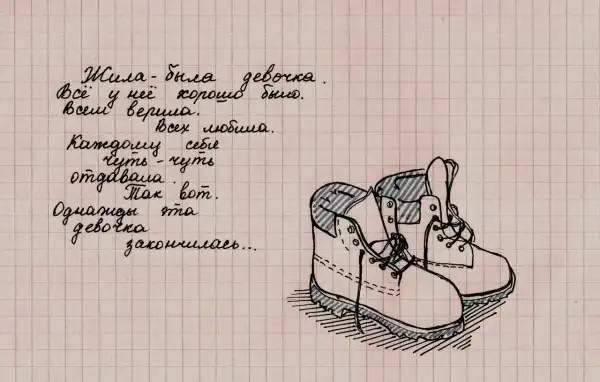 Жила-была девочка.
Всё у неё хорошо было.
Всем верила.
Всех любила.
Каждому себя
чуть-чуть
отдавала.
Так вот.
Однажды эта
девочка
закончилась...